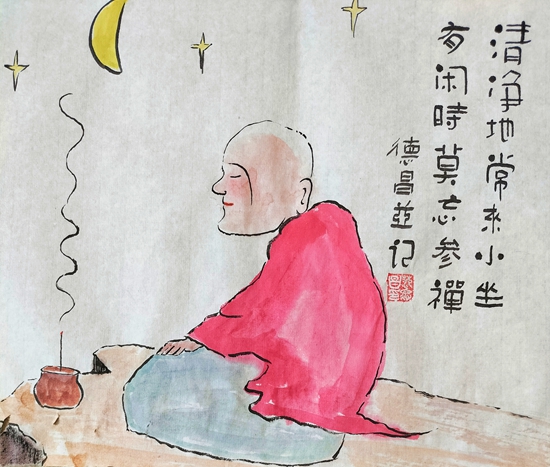 清净地常来小坐
有闲時莫忘参禪
德昌並记